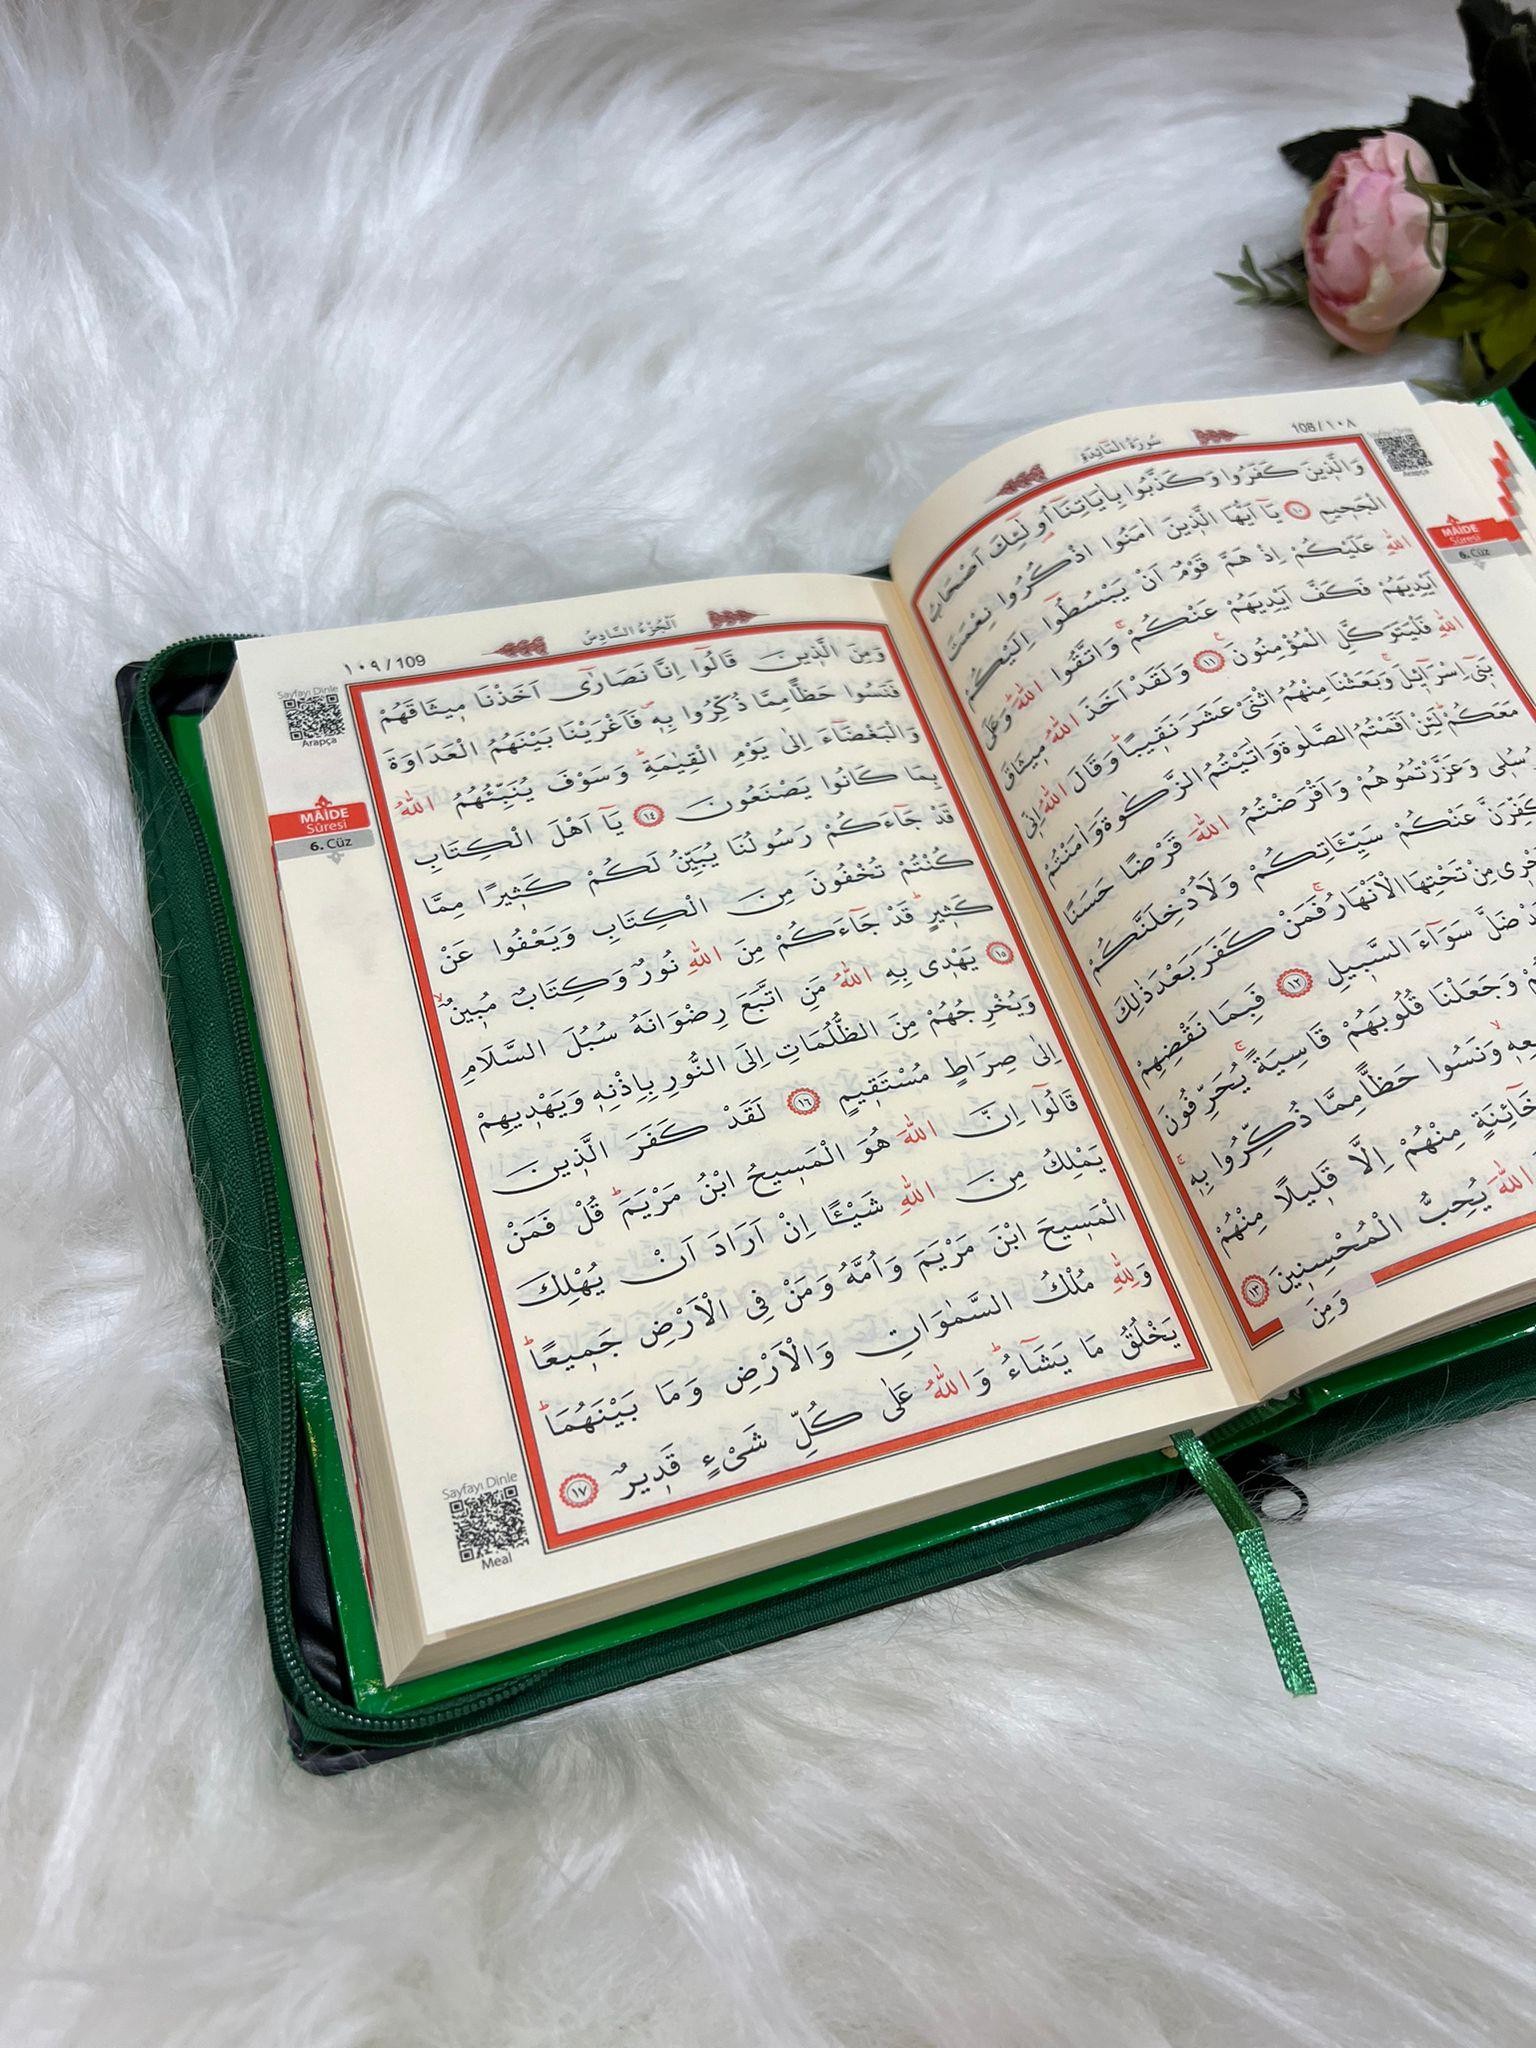 سُورَةُ الْمَائِدَةِ
108/١٠٨
Sayfayı Dinle
Arapça
MÂİDE
Sûresi
6. Cüz
وَالَّذ۪ينَ كَفَرُوا وَكَذَّبُوا بِاٰيَاتِنَٓا اُو۬لٰٓئِكَ اَصْحَابُ
الْجَح۪يمِ ﴿١٠﴾ يَٓا اَيُّهَا الَّذ۪ينَ اٰمَنُوا اذْكُرُوا نِعْمَتَ
اللّٰهِ عَلَيْكُمْ اِذْ هَمَّ قَوْمٌ اَنْ يَبْسُطُٓوا اِلَيْكُمْ
اَيْدِيَهُمْ فَكَفَّ اَيْدِيَهُمْ عَنْكُمْۚ وَاتَّقُوا اللّٰهَۜ وَعَلَى
اللّٰهِ فَلْيَتَوَكَّلِ الْمُؤْمِنُونَ۟ ﴿١١﴾ وَلَقَدْ اَخَذَ اللّٰهُ م۪يثَاقَ
بَن۪ٓي اِسْرَٓائ۪لَۚ وَبَعَثْنَا مِنْهُمُ اثْنَيْ عَشَرَ نَق۪يبًاۜ وَقَالَ اللّٰهُ اِنّ۪ي
مَعَكُمْۜ لَئِنْ اَقَمْتُمُ الصَّلٰوةَ وَاٰتَيْتُمُ الزَّكٰوةَ وَاٰمَنْتُمْ
وَعَزَّرْتُمُوهُمْ وَاَقْرَضْتُمُ اللّٰهَ قَرْضًا حَسَنًا
عَنْكُمْ سَيِّـَٔاتِكُمْ وَلَاُدْخِلَنَّكُمْ
مِنْ تَحْتِهَا الْاَنْهَارُۚ فَمَنْ كَفَرَ بَعْدَ ذٰلِكَ
ضَلَّ سَوَٓاءَ السَّب۪يلِ ﴿١٢﴾ فَبِمَا نَقْضِهِمْ
وَجَعَلْنَا قُلُوبَهُمْ قَاسِيَةًۚ يُحَرِّفُونَ
وَنَسُوا حَظًّا مِمَّا ذُكِّرُوا بِه۪ۚ
خَٓائِنَةٍ مِنْهُمْ اِلَّا قَل۪يلًا مِنْهُمْ
اللّٰهَ يُحِبُّ الْمُحْسِن۪ينَ ﴿١٣﴾
وَمِنَ
اَلْجُزْءُ السَّادِسُ
١٠٩/109
Sayfayı Dinle
Arapça
MÂİDE
Sûresi
6. Cüz
وَمِنَ الَّذ۪ينَ قَالُٓوا اِنَّا نَصَارٰٓى اَخَذْنَا م۪يثَاقَهُمْ
فَنَسُوا حَظًّا مِمَّا ذُكِّرُوا بِه۪ۖ فَاَغْرَيْنَا بَيْنَهُمُ الْعَدَاوَةَ
وَالْبَغْضَٓاءَ اِلٰى يَوْمِ الْقِيٰمَةِۜ وَسَوْفَ يُنَبِّئُهُمُ اللّٰهُ
بِمَا كَانُوا يَصْنَعُونَ ﴿١٤﴾ يَٓا اَهْلَ الْكِتَابِ
قَدْ جَٓاءَكُمْ رَسُولُنَا يُبَيِّنُ لَكُمْ كَث۪يرًا مِمَّا
كُنْتُمْ تُخْفُونَ مِنَ الْكِتَابِ وَيَعْفُوا عَنْ
كَث۪يرٍۜ قَدْ جَٓاءَكُمْ مِنَ اللّٰهِ نُورٌ وَكِتَابٌ مُب۪ينٌۙ
﴿١٥﴾ يَهْد۪ي بِهِ اللّٰهُ مَنِ اتَّبَعَ رِضْوَانَهُ سُبُلَ السَّلَامِ
وَيُخْرِجُهُمْ مِنَ الظُّلُمَاتِ اِلَى النُّورِ بِاِذْنِه۪ وَيَهْد۪يهِمْ
اِلٰى صِرَاطٍ مُسْتَق۪يمٍ ﴿١٦﴾ لَقَدْ كَفَرَ الَّذ۪ينَ
قَالُٓوا اِنَّ اللّٰهَ هُوَ الْمَس۪يحُ ابْنُ مَرْيَمَۜ قُلْ فَمَنْ
يَمْلِكُ مِنَ اللّٰهِ شَيْـًٔا اِنْ اَرَادَ اَنْ يُهْلِكَ
الْمَس۪يحَ ابْنَ مَرْيَمَ وَاُمَّهُ وَمَنْ فِي الْاَرْضِ جَم۪يعًاۜ
وَلِلّٰهِ مُلْكُ السَّمٰوَاتِ وَالْاَرْضِ وَمَا بَيْنَهُمَاۜ
يَخْلُقُ مَا يَشَٓاءُۜ وَاللّٰهُ عَلٰى كُلِّ شَيْءٍ قَد۪يرٌ ﴿١٧﴾
Sayfayı Dinle
Meal